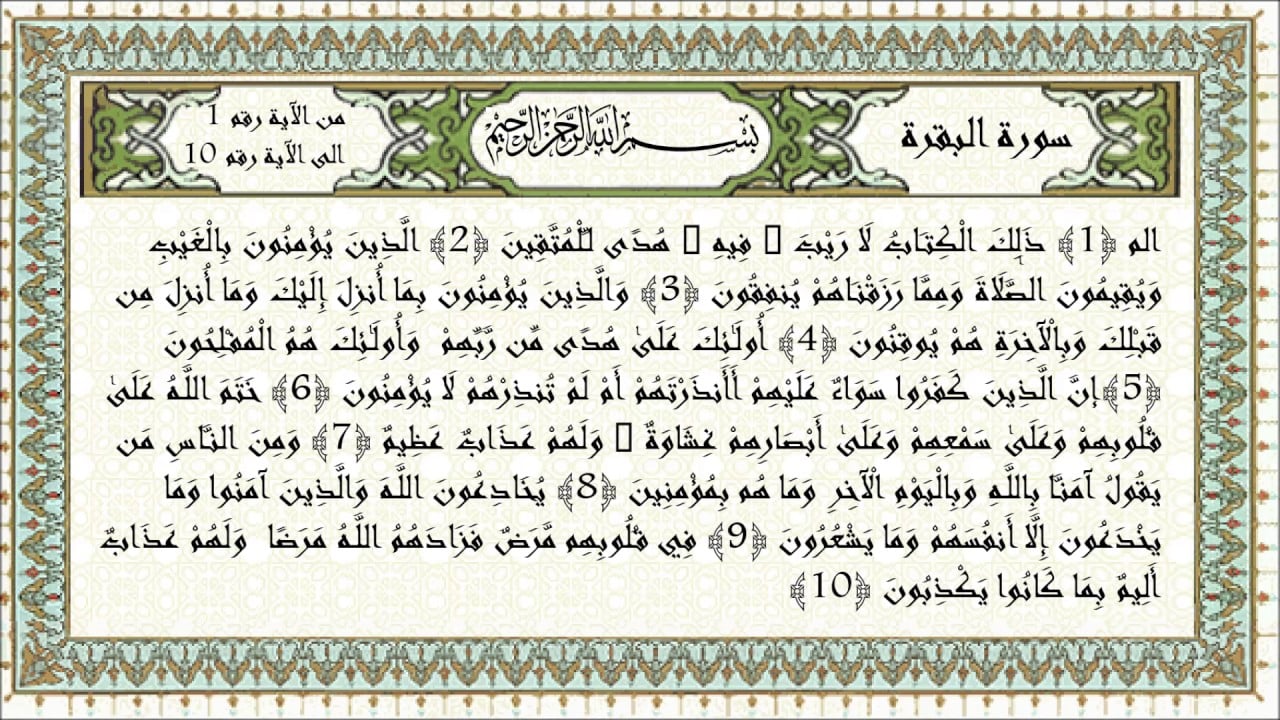 سورة البقرة
بسم الله الرحمن الرحيم
من الآية رقم 1
الى الآية رقم 10
الم ﴿1﴾ ذَٰلِكَ الْكِتَابُ لَا رَيْبَ ▯ فِيهِ ▯ هُدًى لِّلْمُتَّقِينَ ﴿2﴾ الَّذِينَ يُؤْمِنُونَ بِالْغَيْبِ
وَيُقِيمُونَ الصَّلَاةَ وَمِمَّا رَزَقْنَاهُمْ يُنفِقُونَ ﴿3﴾ وَالَّذِينَ يُؤْمِنُونَ بِمَا أُنزِلَ إِلَيْكَ وَمَا أُنزِلَ مِن
قَبْلِكَ وَبِالْآخِرَةِ هُمْ يُوقِنُونَ ﴿4﴾ أُولَٰئِكَ عَلَىٰ هُدًى مِّن رَّبِّهِمْ وَأُولَٰئِكَ هُمُ الْمُفْلِحُونَ
﴿5﴾ إِنَّ الَّذِينَ كَفَرُوا سَوَاءٌ عَلَيْهِمْ أَأَنذَرْتَهُمْ أَمْ لَمْ تُنذِرْهُمْ لَا يُؤْمِنُونَ ﴿6﴾ خَتَمَ اللَّهُ عَلَىٰ
قُلُوبِهِمْ وَعَلَىٰ سَمْعِهِمْ وَعَلَىٰ أَبْصَارِهِمْ غِشَاوَةٌ ▯ وَلَهُمْ عَذَابٌ عَظِيمٌ ﴿7﴾ وَمِنَ النَّاسِ مَن
يَقُولُ آمَنَّا بِاللَّهِ وَبِالْيَوْمِ الْآخِرِ وَمَا هُم بِمُؤْمِنِينَ ﴿8﴾ يُخَادِعُونَ اللَّهَ وَالَّذِينَ آمَنُوا وَمَا
يَخْدَعُونَ إِلَّا أَنفُسَهُمْ وَمَا يَشْعُرُونَ ﴿9﴾ فِي قُلُوبِهِم مَّرَضٌ فَزَادَهُمُ اللَّهُ مَرَضًا وَلَهُمْ عَذَابٌ
أَلِيمٌ بِمَا كَانُوا يَكْذِبُونَ ﴿10﴾